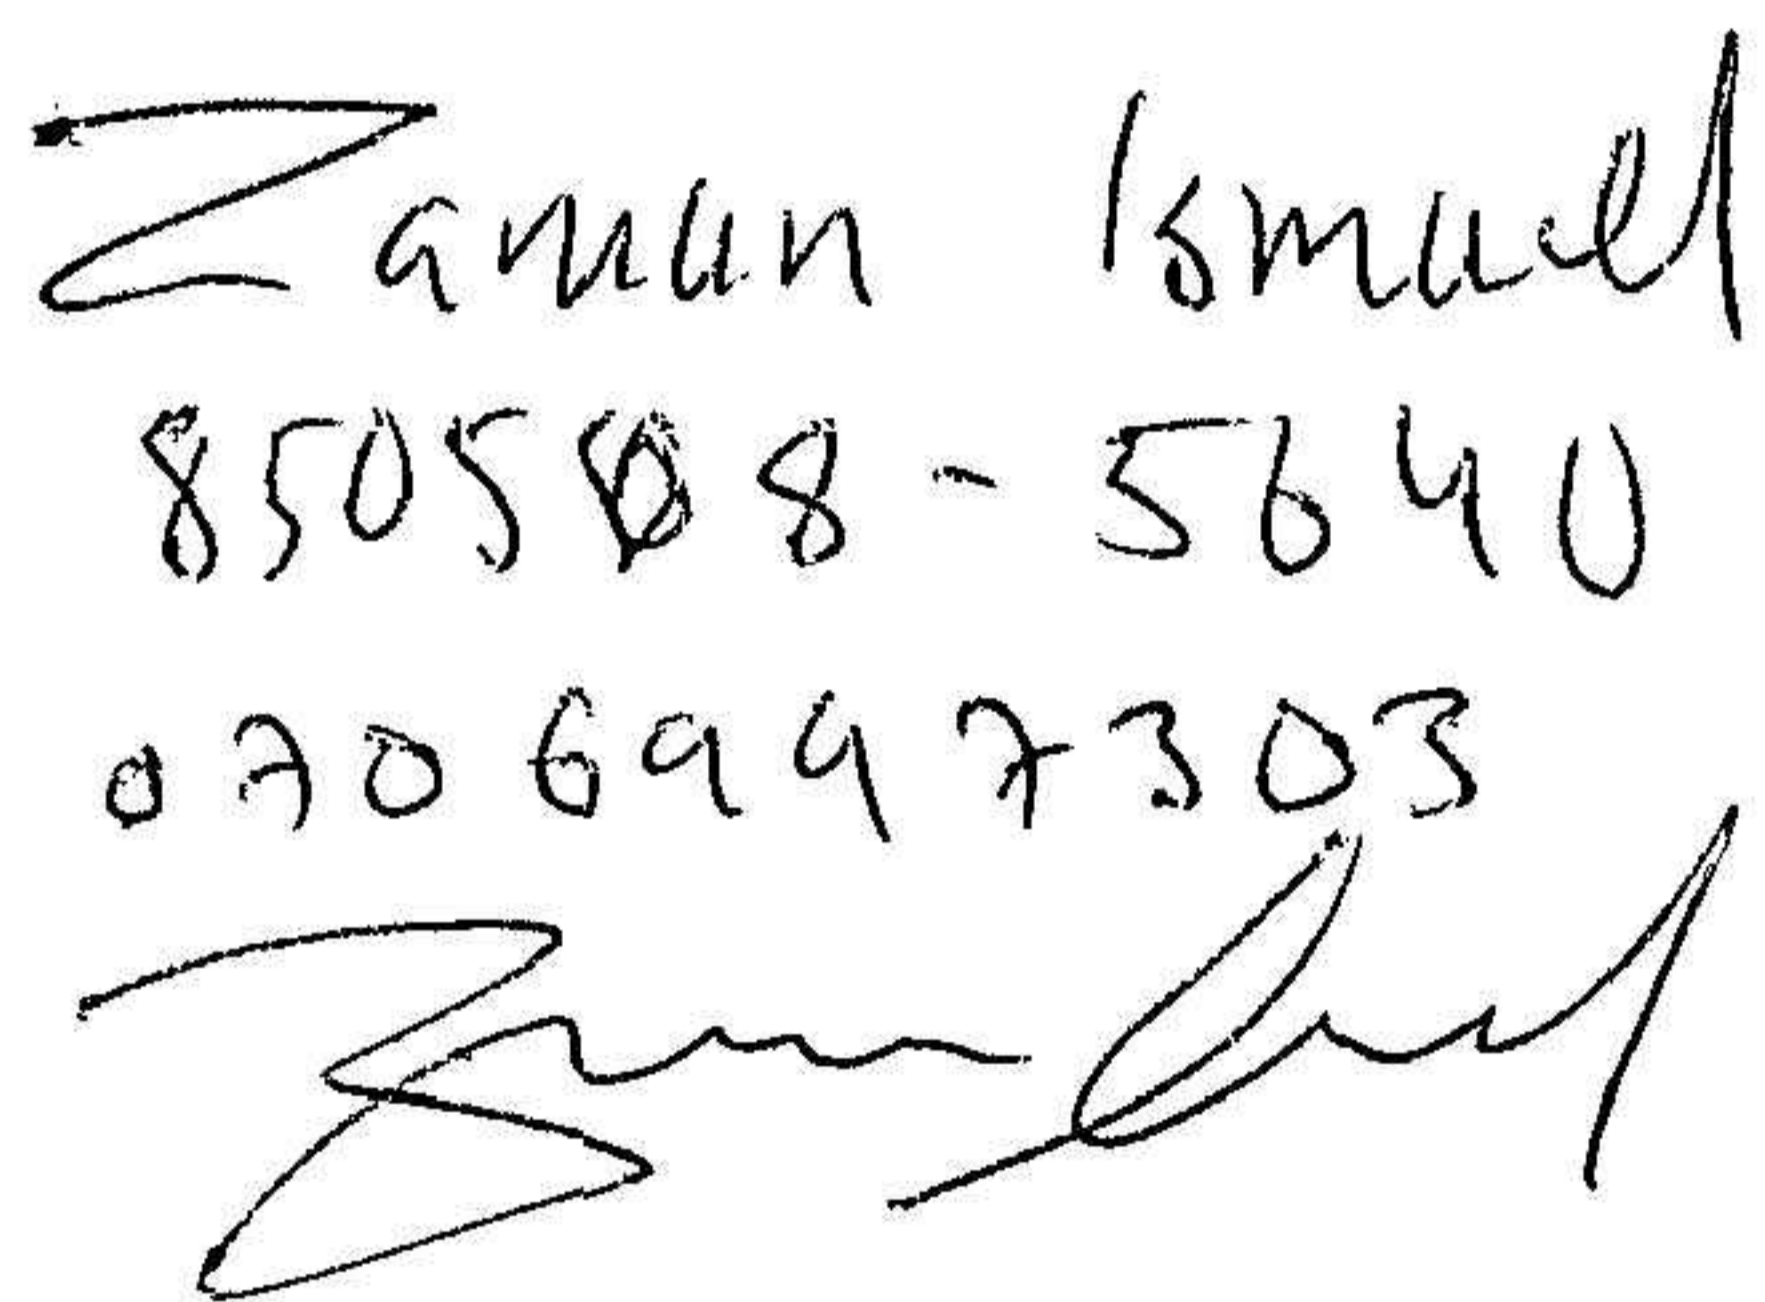 Zaman Ismael
850508-5640
0706997303